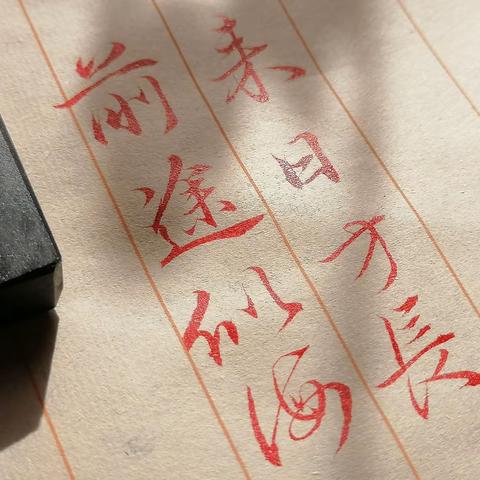 来日方長
前途似海